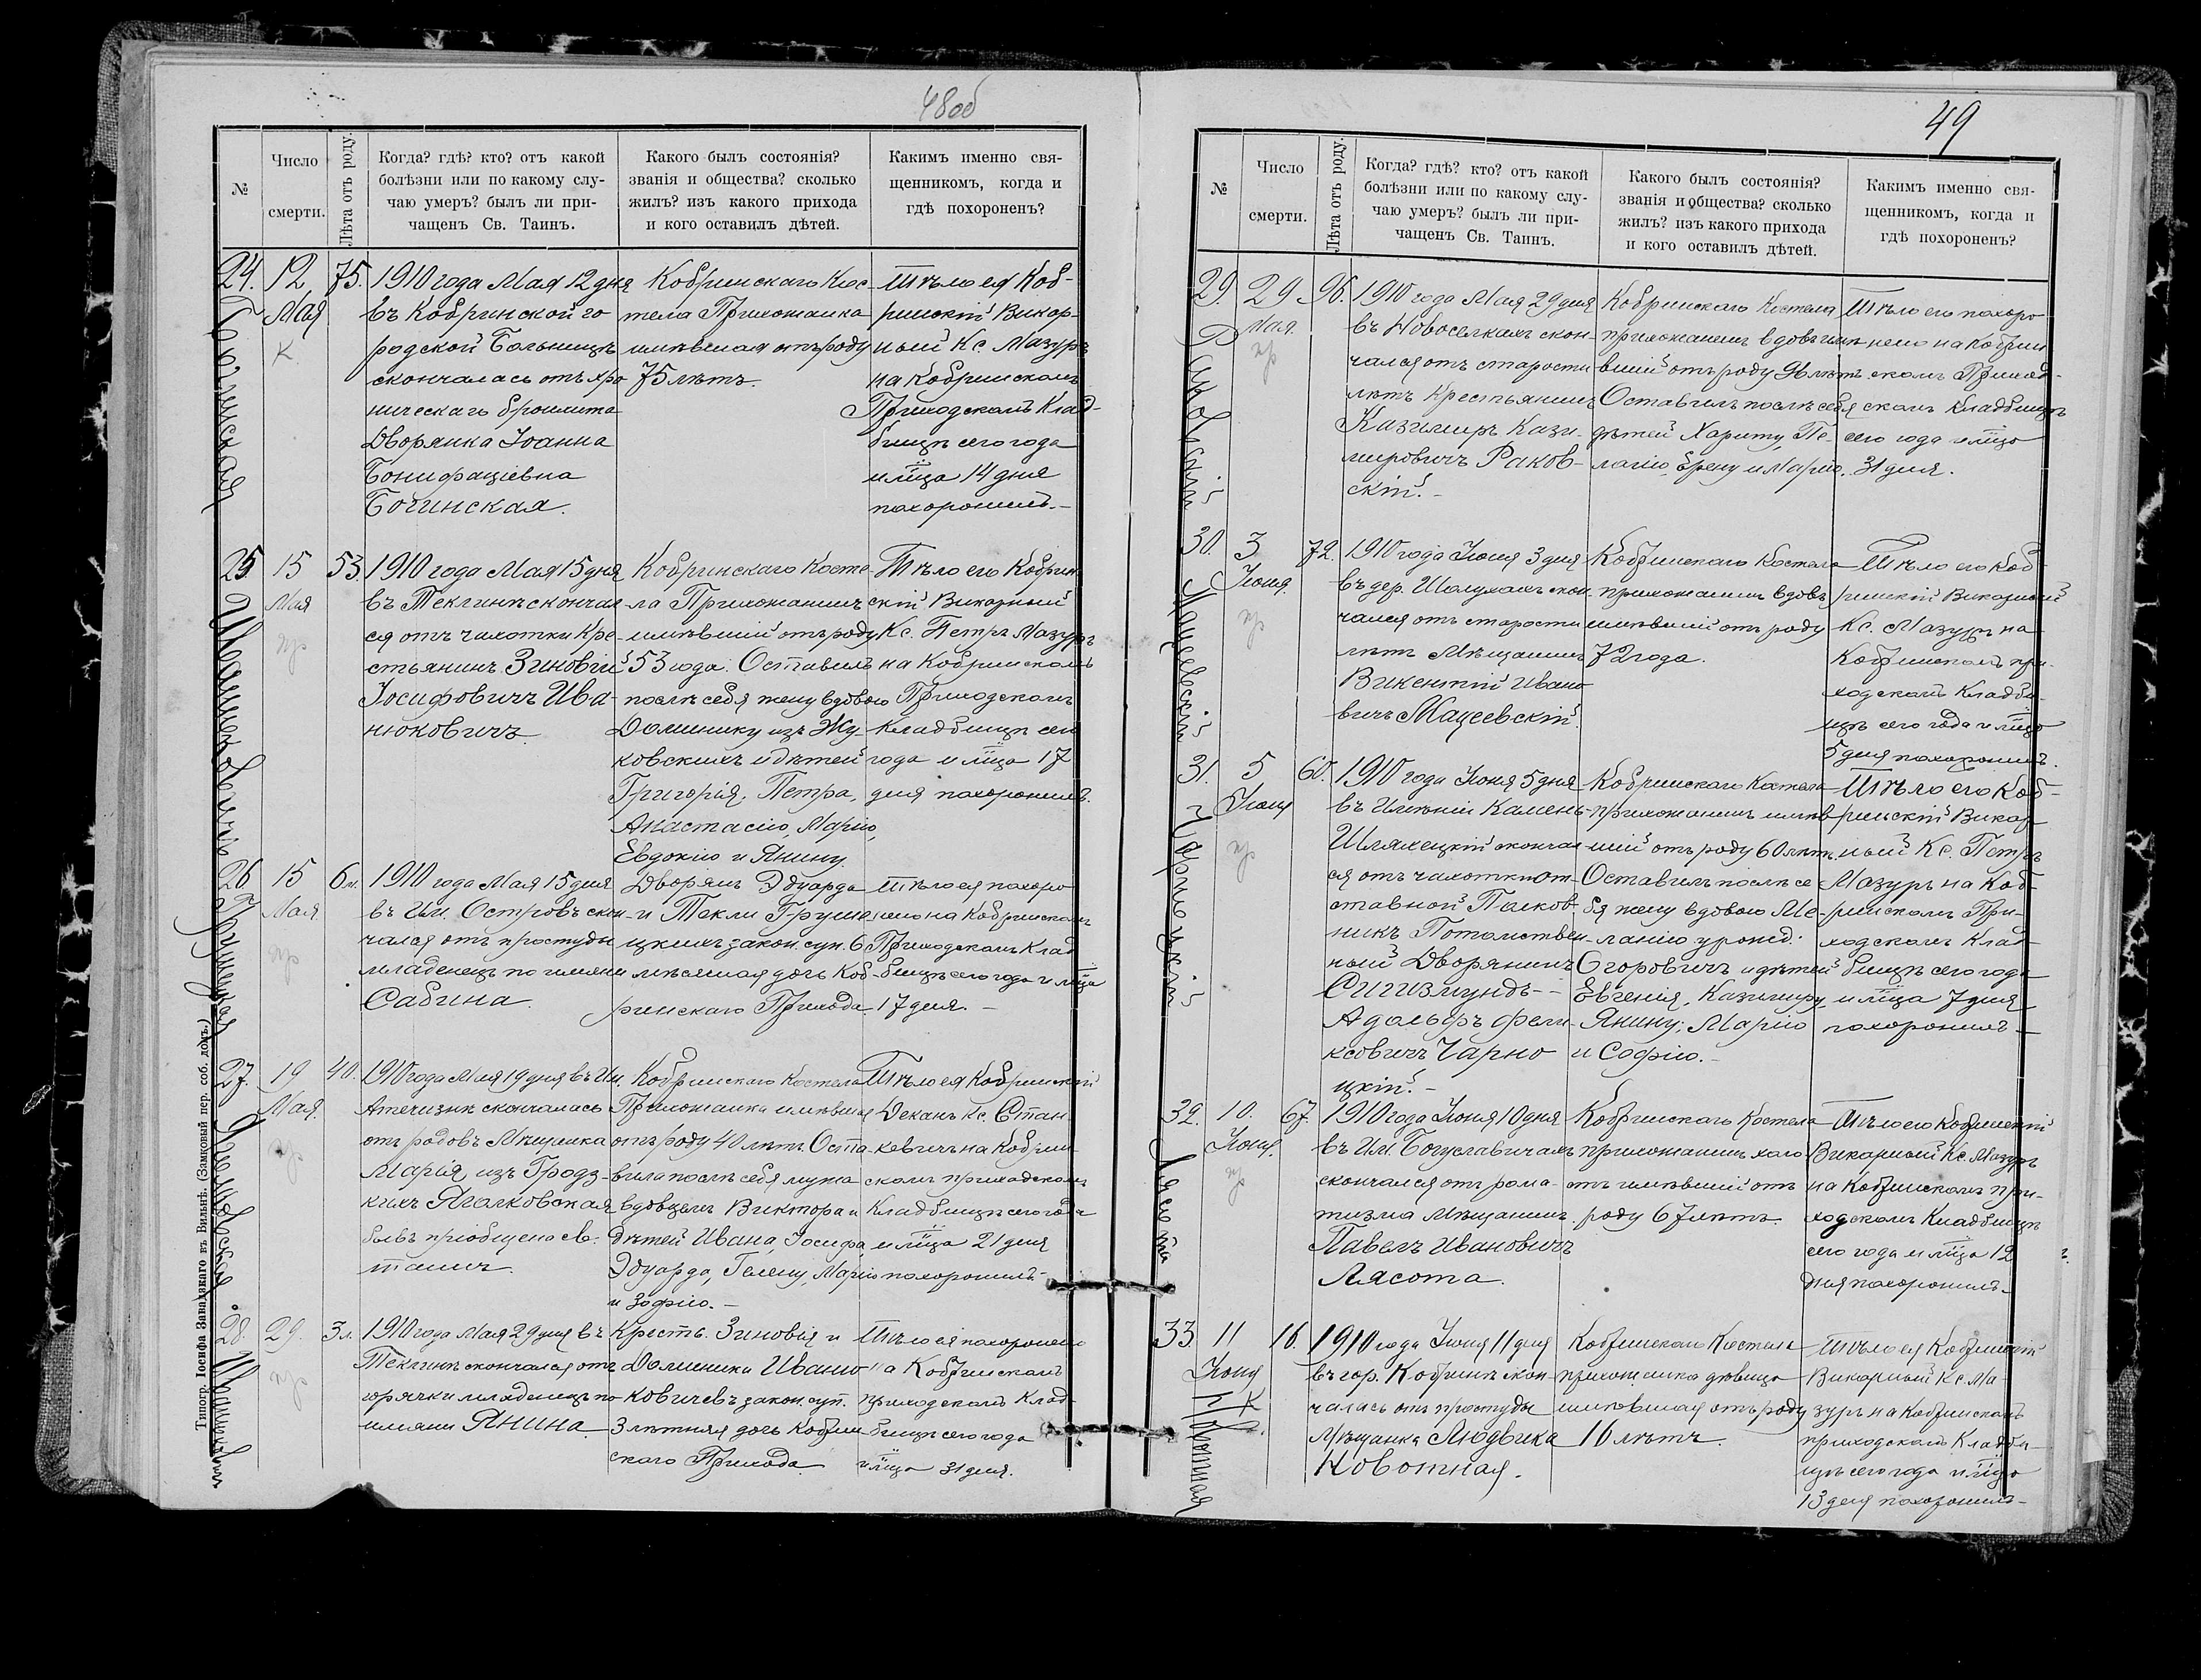 48 об
№
Число
смерти.
Лѣта отъ роду.
Когда? гдѣ? кто? отъ какой
болѣзни или по какому слу-
чаю умеръ? былъ ли при-
чащенъ Св. Таинъ.
Какого былъ состоянія?
званія и общества? сколько
жилъ? изъ какого прихода
и кого оставилъ дѣтей.
Какимъ именно свя-
щенникомъ, когда и
гдѣ похороненъ?
24.
Бочинская
12
Мая
К.
75.
1910 года Мая 12 дня
въ Кобринской го-
родской Больницѣ
скончалась отъ хро
ническаго бронхита
Дворянка Іоанна
Бонифаціевна
Бочинская.
Кобринскаго Кос-
тела Прихожанка
имѣвшая отъ роду
75 лѣтъ.
Тѣло ея Коб-
ринскій Викар-
ный Кс. Мазуръ
на Кобринскомъ
Приходскомъ Клад-
бищѣ сего года
и м͠ца 14 дня
похоронилъ.-
25.
Иванюковичъ
15
Мая
пр
53.
1910 года Мая 15 дня
въ Теклинѣ скончал-
ся отъ чахотки Кре-
стьянинъ Зиновій
Іосифовичъ Ива-
нюковичъ.
Кобринскаго Косте-
ла Прихожанинъ
имѣвшій отъ роду
53 года. Оставилъ
послѣ себя жену вдовою
Доминику изъ Жу-
ковскихъ и дѣтей
Григорія, Петра,
Анастасію, Марію,
Евдокію и Янину.
Тѣло его Кобрин-
скій Викарный
Кс. Петръ Мазуръ
на Кобринскомъ
Приходскомъ
Кладбищѣ сего
года и м͠ца 17
дня похоронилъ.
26
15
Мая
пр
6 м.
1910 года Мая 15 дня
въ Им. Островъ скон-
чался отъ простуды
младенецъ по имени
Сабина.
Дворянъ Эдуарда
и Текли Груше
цкихъ закон. суп. 6
мѣсячная дочь Коб-
ринскаго Прихода
Тѣло ея похоро
нено на Кобринскомъ
Приходскомъ Клад
бищѣ сего года и м͠ца
17 дня. -
27.
Яголковская
19
Мая.
пр
40.
1910 года Мая 19 дня въ Им.
Атечизнѣ скончалась
отъ родовъ Мѣщанка
Марія, изъ Гродз-
кихъ Яголковская
бывъ пріобщена св.
таинъ.
Кобринскаго Костела
Прихожанка имѣвшая
отъ роду 40 лѣтъ. Оста-
вила послѣ себя мужа
вдовцемъ Виктора и
дѣтей Ивана, Іосифа,
Эдуарда, Гелену, Марію
и Зофію. -
Тѣло ея Кобринскій
Деканъ Кс. Стан-
кевичъ на Кобрин-
скомъ приходскомъ
Кладбищѣ сего года
и м͠ца 21 дня
похоронилъ-
28.
29.
пр
3 л.
1910 года Мая 29 дня въ
Теклинѣ скончался отъ
горячки младенецъ по
имени Янина.
Крестъ. Зиновія и
Доминики Иваню
ковичевъ закон. суп.
3 лѣтняя дочь Кобрин
скаго Прихода.
Тѣло ея похоронено
на Кобринскомъ
приходскомъ Клад-
бищѣ сего года
и м͠ца 31 дня.
Типогр. Іосифа Завадзкаго въ Вильнѣ. (Замковый пер. соб. домъ.)
49
№
Число
смерти.
Лѣта отъ роду.
Когда? гдѣ? кто? отъ какой
болѣзни или по какому слу-
чаю умеръ? былъ ли при-
чащенъ Св. Таинъ.
Какого былъ состоянія?
званія и общества? сколько
жилъ? изъ какого прихода
и кого оставилъ дѣтей.
Какимъ именно свя-
щенникомъ, когда и
гдѣ похороненъ?
29.
Раковскій
29
Мая.
пр
96.
1910 года Мая 29 дня
въ Новоселкахъ скон-
чался отъ старости
лѣтъ Крестьянинъ
Казимиръ Кази-
мировичъ Раков-
скій.-
Кобринскаго Костела
прихожанинъ вдовъ имѣ
вшій отъ роду 96 лѣтъ.
Оставилъ послѣ себя
дѣтей Хариту, Пе-
лагію, Ерену и Марію.
Тѣло его похоро
нено на Кобрин
скомъ Приход-
скомъ Кладбищѣ
сего года и м͠ца
31 дня.
30.
Мацеевскій
3
Іюня.
пр
72.
1910 года Іюня 3 дня
въ дер. Шолухахъ скон.
чался отъ старости
лѣтъ Мѣщанинъ
Викентій Ивано
вичъ Мацеевскій.
Кобринскаго Костела
прихожанинъ вдовъ
имѣвшій отъ роду
72 года.
Тѣло его Коб-
ринскій Викарный
Кс. Мазуръ на
Кобринскомъ при-
ходскомъ Кладби-
щѣ сего года и м͠ца
5 дня похоронилъ.
31.
Чарноцкій
5
Іюня
пр
60.
1910 года Іюня 5 дня
въ Имѣніи Камень-
Шляхецкій скончал
ся отъ чахотки От-
ставной Полков-
никъ Потомствен-
ный Дворянинъ
Сигизмундъ-
Адольфъ Фели-
ксовичъ Чарно
цкій.-
Кобринскаго Костела
прихожанинъ имѣв
шій отъ роду 60 лѣтъ.
Оставилъ послѣ се-
бя жену вдовою Ме-
ланію урожд.
Огоровичъ и дѣтей
Евгенія, Казимиру
Янину, Марію
и Софію.-
Тѣло его Коб-
ринскій Викар-
ный Кс. Петръ
Мазуръ на Коб-
ринскомъ При-
ходскомъ Клад-
бищѣ сего года
и м͠ца 7 дня
похоронилъ-
32.
Лясота
10.
Іюня.
пр
67.
1910 года Іюня 10 дня
въ Им. Богуславичахъ
скончался отъ рома-
тизма Мѣщанинъ
Павелъ Ивановичъ
Лясота.
Кобринскаго Костела
прихожанинъ холо
стъ имѣвшій отъ
роду 67 лѣтъ.
Тѣло его Кобринскій
Викарный Кс. Мазуръ
на Кобринскомъ при-
ходскомъ Кладбищѣ
сего года и м͠ца 12
дня похоронилъ-
33
11
Іюня
К
16.
1910 года Іюня 11 дня
въ гор. Кобринѣ скон-
чалась отъ простуды
Мѣщанка Людвика
Новотная.
Кобринскаго Костела
прихожанка дѣвица
имѣвшая отъ роду
16 лѣтъ.
Тѣло ея Кобринскій
Викарный Кс. Ма-
зуръ на Кобринскомъ
приходскомъ Кладби-
щѣ сего года и м͠ца
13 дня похоронилъ-